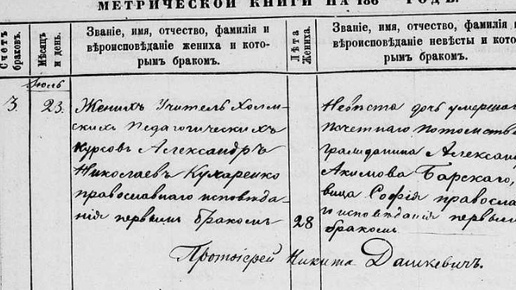 МЕТРИЧЕСКОЙ КНИГИ НА 186 ГОДЪ.
Счетъ браковъ.
Мѣсяцъ и день.
Званіе, имя, отчество, фамилія и
вѣроисповѣданіе жениха и кото-
рымъ бракомъ.
Лѣта Жениха.
Званіе, имя, отчество, фамилія
вѣроисповѣданіе невѣсты и ко
рымъ бракомъ.
Іюль
3. 23.
Женихъ Учитель Холм-
скихъ Педагогическихъ
Курсовъ Александръ
Николаевъ Кухаренко
православнаго исповѣда-
нія первымъ бракомъ
28
Невѣста дочь умершаго
почетнаго потомств
гражданина Алексан
Акимова Барскаго,
вица Софія правосла
го исповѣданія первым
бракомъ
Протоіерей Никита Дашкевичъ.